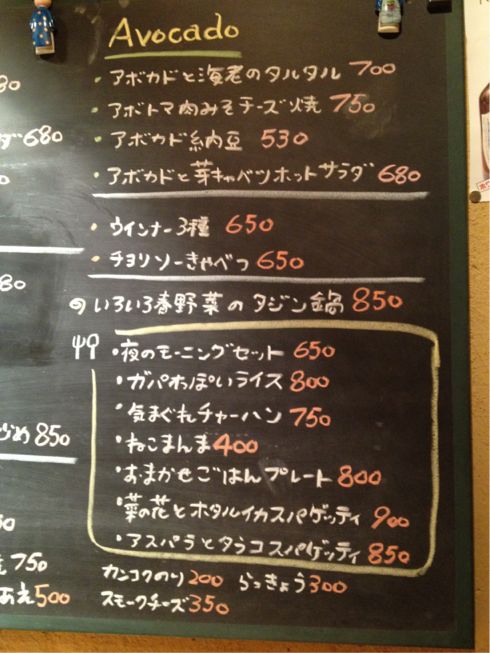 Avocado
・アボカドと海老のタルタル 700
・アボトマ肉みそチーズ焼 750
・アボカド納豆 530
・アボカドと芽キャベツホットサラダ 680
・ウインナー3種 650
・チョリソーきゃべつ 650
いろいろ春野菜のタジン鍋 850
・夜のモーニングセット 650
・ガパオっぽいライス 800
・気まぐれチャーハン 750
・ねこまんま 400
・おまかせごはんプレート 800
・菜の花とホタルイカスパゲッティ 900
・アスパラとタラコスパゲッティ 850
カンコクのり 200 らっきょう 300
スモークチーズ 350
80
680
80
850
750
あえ 500